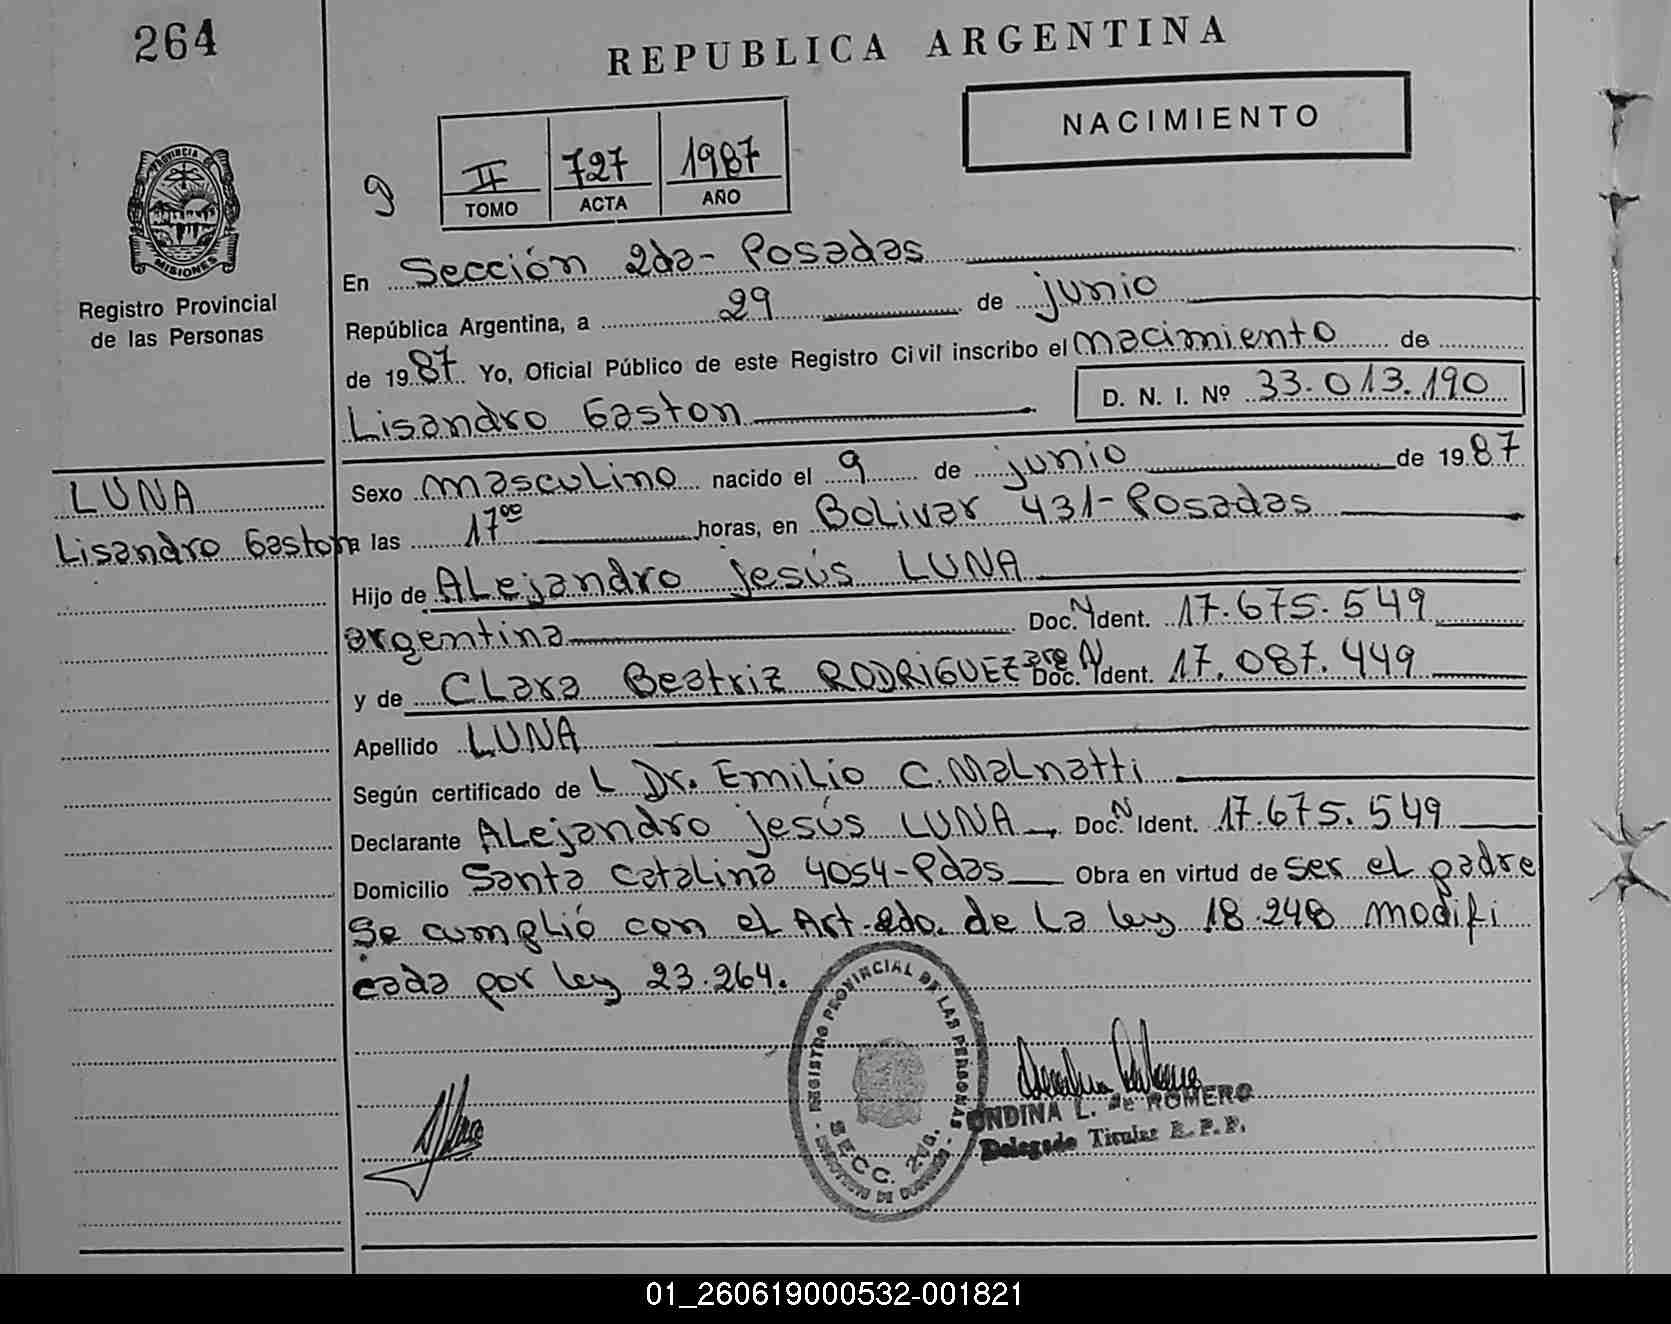 264
REPUBLICA ARGENTINA
NACIMIENTO
II 727 1987
TOMO ACTA AÑO
9
PROVINCIA DE
MISIONES
Registro Provincial
de las Personas
En Sección 2da- Posadas
República Argentina, a 29 de junio
de 1987 Yo, Oficial Público de este Registro Civil inscribo el nacimiento de
Lisandro Gaston D. N. I. Nº 33.013.190
LUNA
Lisandro Gaston
Sexo masculino nacido el 9 de junio de 1987
a las 17⁰⁰ horas, en Bolivar 431-Posadas
Hijo de Alejandro Jesús LUNA
argentina Doc. N Ident. 17.675.549
y de Clara Beatriz RODRIGUEZ arg Doc. N Ident. 17.087.449
Apellido LUNA
Según certificado de L Dr. Emilio C. Malnatti
Declarante Alejandro Jesús LUNA, Doc. N Ident. 17.675.549
Domicilio Santa Catalina 4054-Pdas Obra en virtud de ser el padre
Se cumplió con el Art. 2do. de la ley 18.248 modifi
cada por ley 23.264.
REGISTRO PROVINCIAL DE LAS PERSONAS
SECC. 2da.
UNDINA L. de ROMERO
Delegado Titular R. P. P.
01_260619000532-001821